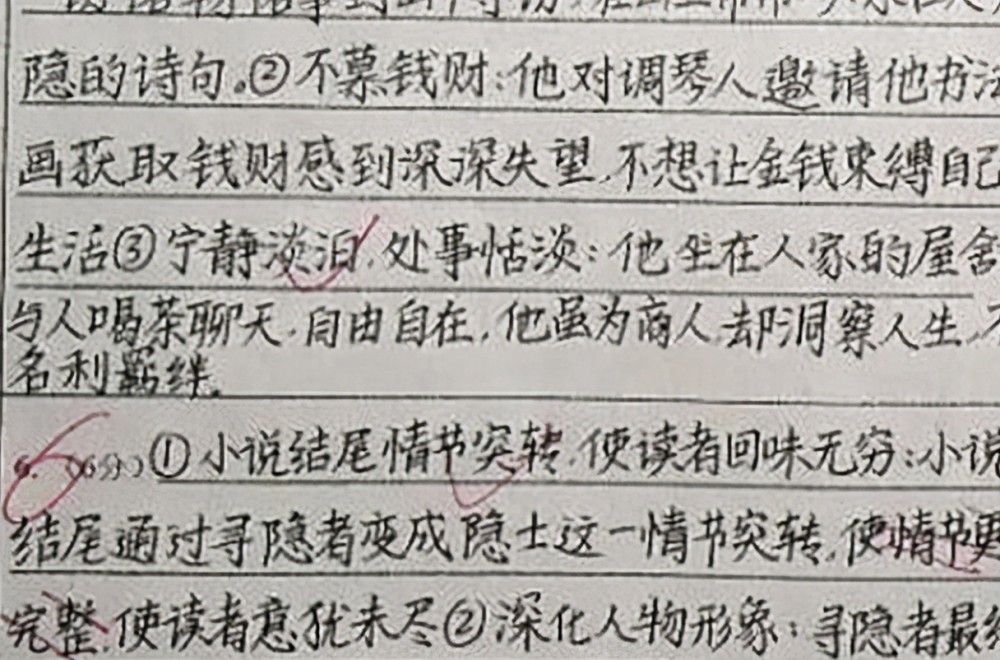 隐的诗句。②不慕钱财:他对调琴人邀请他书法
画获取钱财感到深深失望,不想让金钱束缚自己
生活③宁静淡泊,处事恬淡:他坐在人家的屋舍
与人喝茶聊天,自由自在,他虽为商人却洞察人生,不
名利羁绊。
(6分)①小说结尾情节突转,使读者回味无穷:小说
结尾通过寻隐者变成隐士这一情节突转,使情节更
完整,使读者意犹未尽②深化人物形象:寻隐者最终